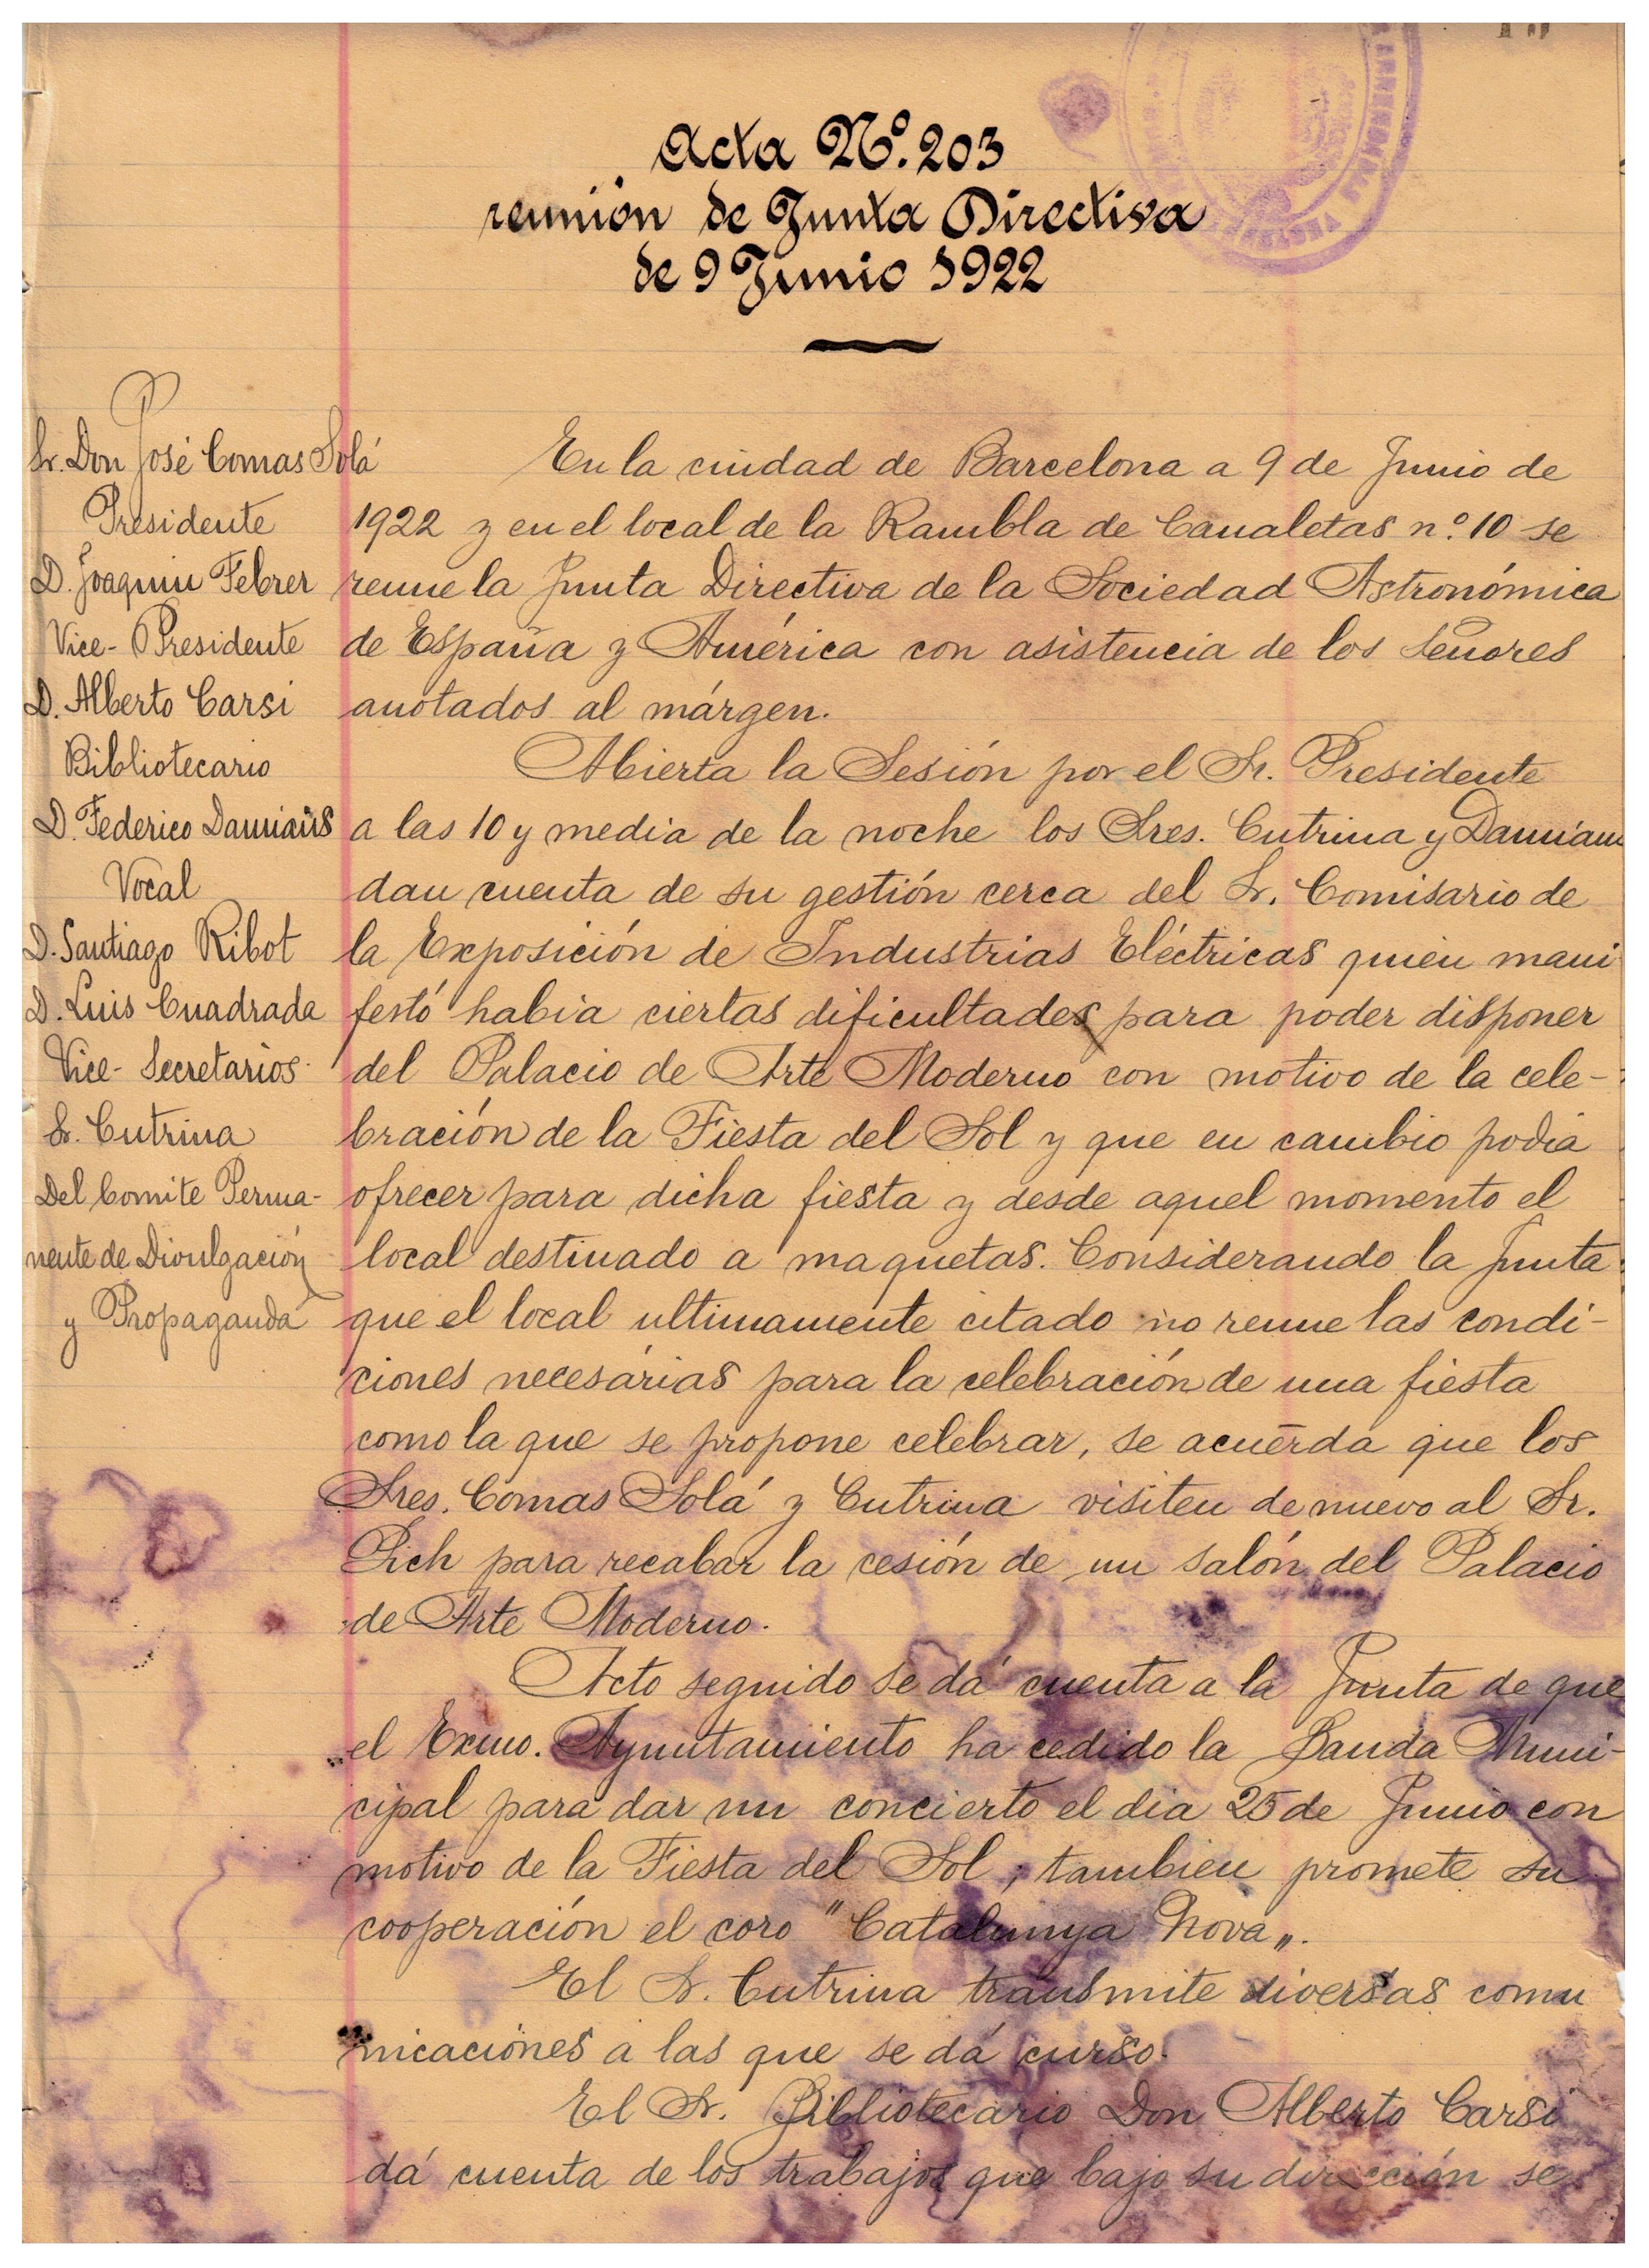 Acta Nº. 203
reunión de Junta Directiva
de 9 Junio 1922
Sr. Don José Comas Solá
Presidente
D. Joaquin Febrer
Vice-Presidente
D. Alberto Carsi
Bibliotecario
D. Federico Damians
Vocal
D. Santiago Ribot
D. Luis Cuadrada
Vice-Secretarios
Sr. Cutrina
Del Comite Perma-
nente de Divulgación
y Propaganda
En la ciudad de Barcelona a 9 de Junio de
1922 y en el local de la Rambla de Canaletas n.º 10 se
reune la Junta Directiva de la Sociedad Astronómica
de España y América con asistencia de los Señores
anotados al márgen.
Abierta la Sesión por el Sr. Presidente
a las 10 y media de la noche los Sres. Cutrina y Damians
dan cuenta de su gestión cerca del Sr. Comisario de
la Exposición de Industrias Eléctricas quien mani
festó habia ciertas dificultades para poder disponer
del Palacio de Arte Moderno con motivo de la cele-
bración de la Fiesta del Sol y que en cambio podia
ofrecer para dicha fiesta y desde aquel momento el
local destinado a maquetas. Considerando la Junta
que el local ultimamente citado no reune las condi-
ciones necesárias para la celebración de una fiesta
como la que se propone celebrar, se acuerda que los
Sres. Comas Solá y Cutrina visiten de nuevo al Sr.
Pich para recabar la cesión de un salón del Palacio
de Arte Moderno.
Acto seguido se dá cuenta a la Junta de que
el Exmo. Ayuntamiento ha cedido la Banda Muni-
cipal para dar un concierto el dia 25 de Junio con
motivo de la Fiesta del Sol; tambien promete su
cooperación el coro "Catalunya Nova".
El Sr. Cutrina transmite diversas comu
nicaciónes a las que se dá curso.
El Sr. Bibliotecario Don Alberto Carsi
dá cuenta de los trabajos que bajo su dirección se